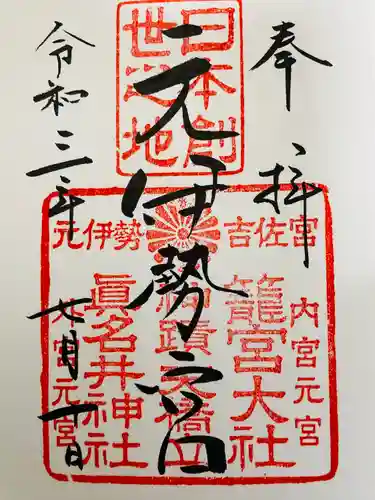 奉拝
日本創
世之地
元伊勢宮
吉佐宮
元伊勢
内宮元宮
籠宮大社
勝蹟天橋立
眞名井神社
外宮元宮
令和三年
月十日